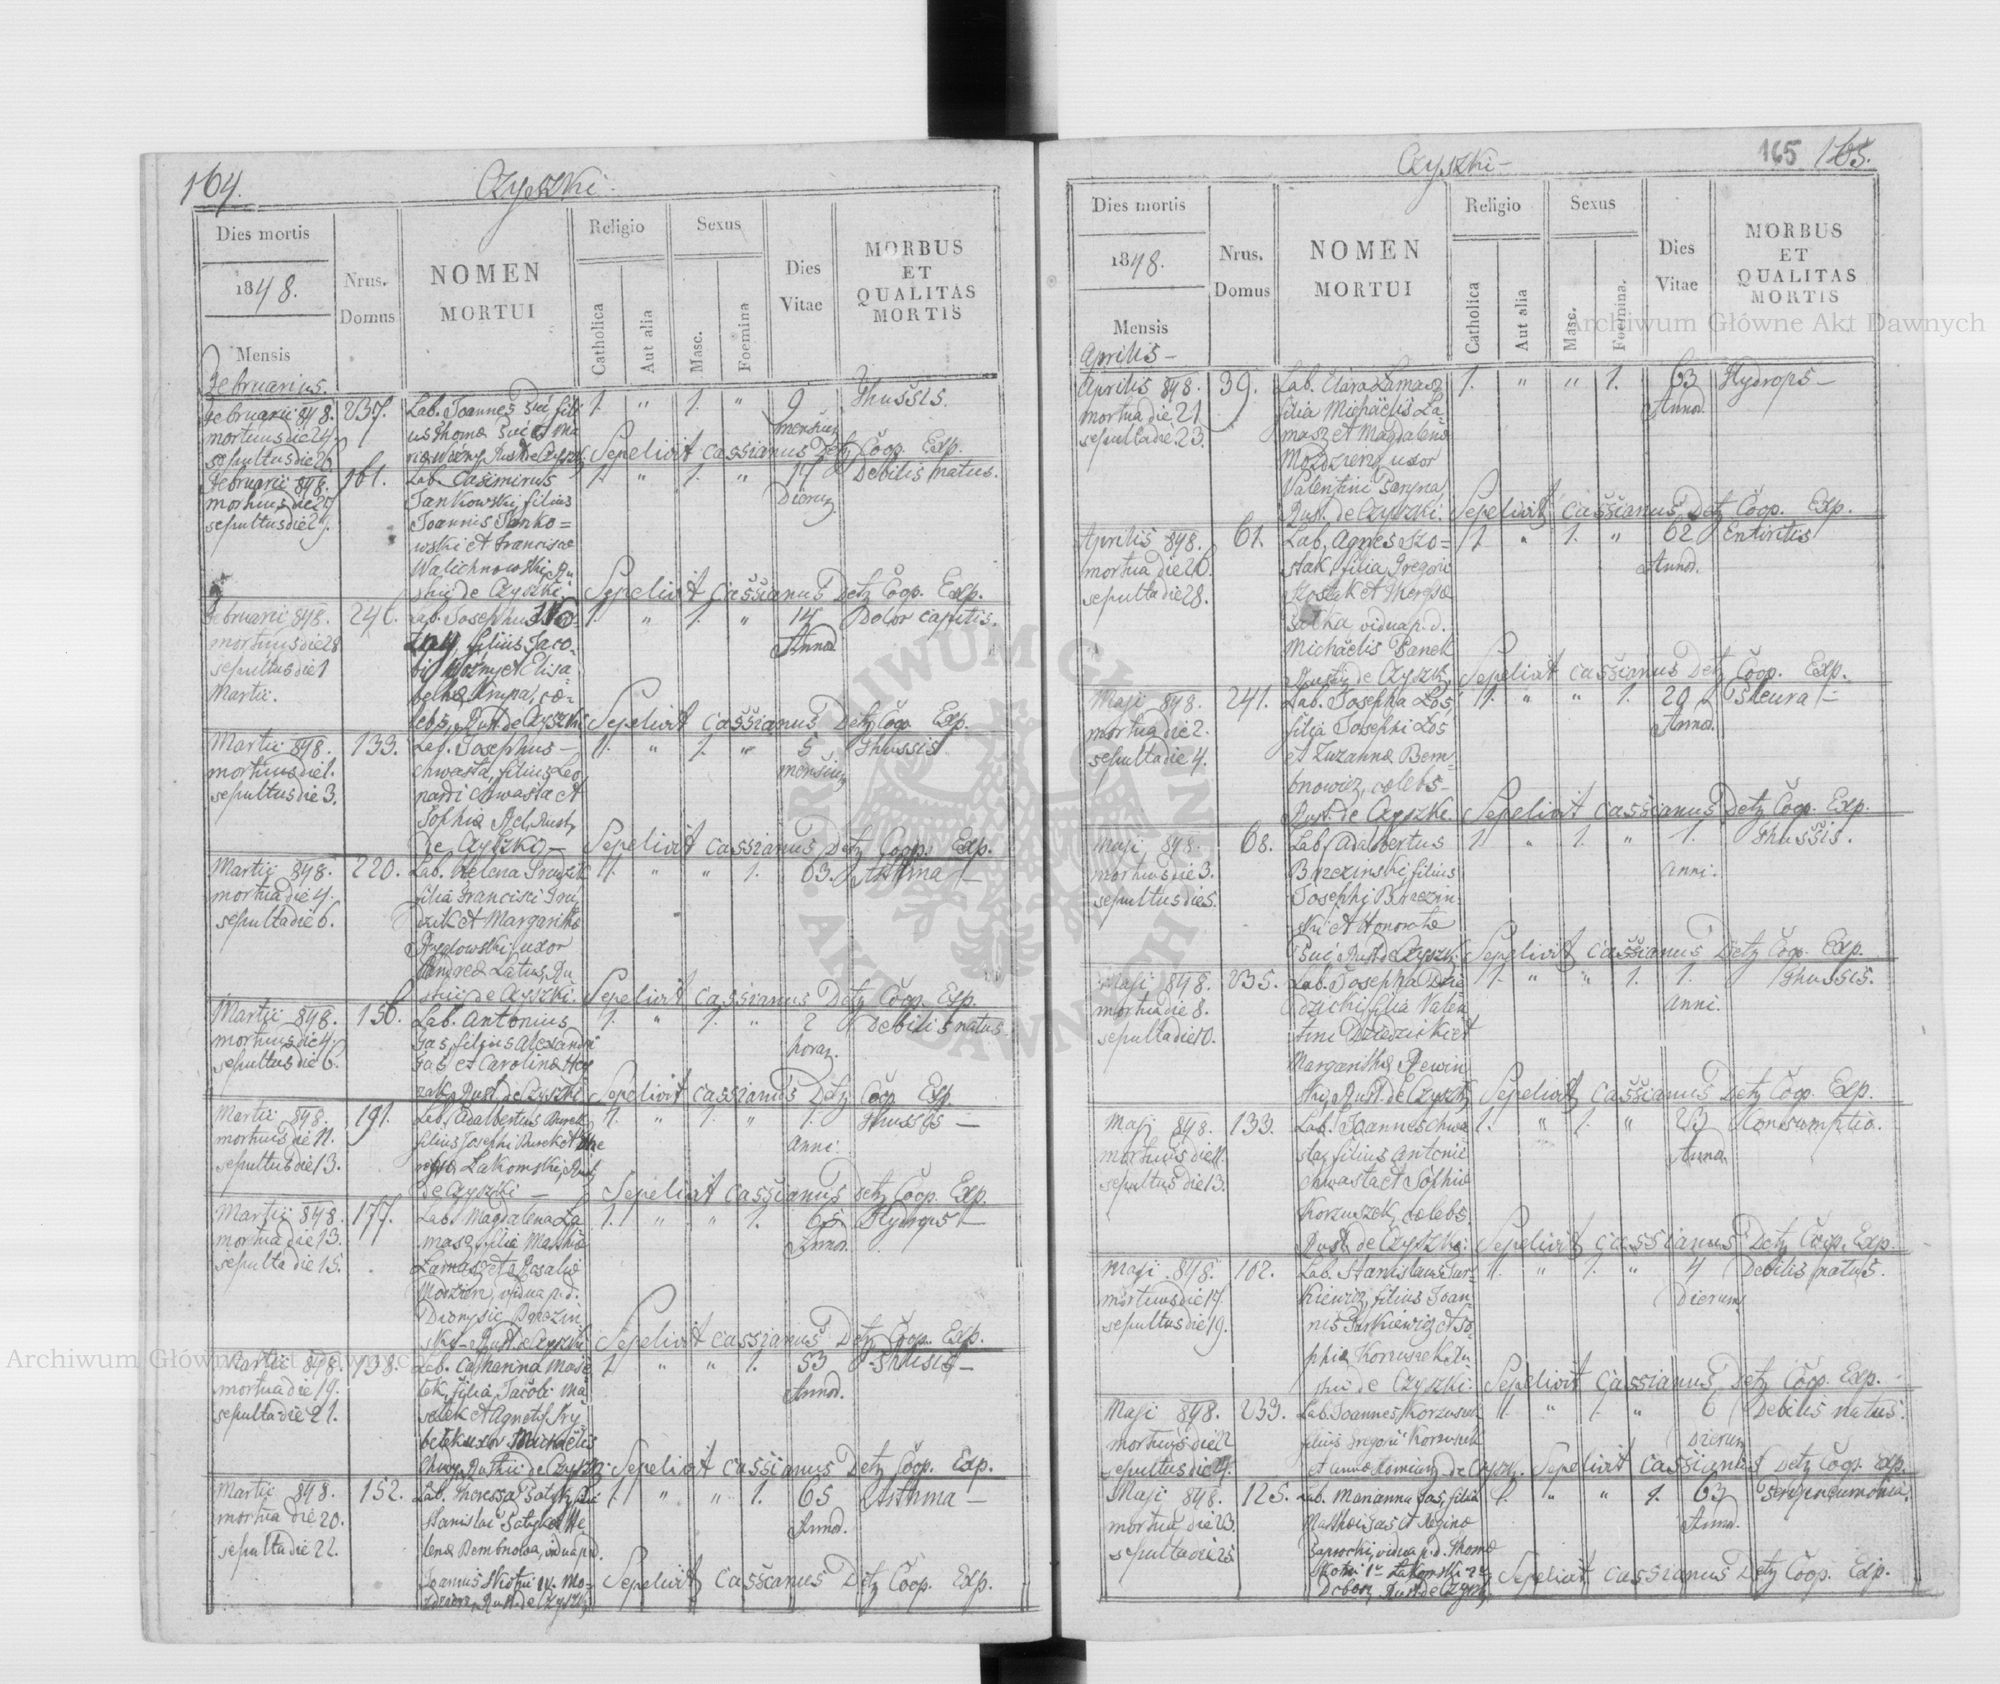 164.
Czyszki.
Dies mortis
1848.
Mensis
Februarius.
Nrus.
Domus
NOMEN
MORTUI
Religio
Catholica
Aut alia
Sexus
Masc.
Foemina
Dies
Vitae
MORBUS
ET
QUALITAS
MORTIS
Februarii 848. 237. Lab. Joannes fili 1. " 1. " 9 Thussis.
mortuus die 24. us Thoma et Ma mensium
sepultus die 26 Rust. de Czyszki Sepelivit Cassianus Detz Coop. Exp.
Februarii 848. 161. Lab. Casimirus 1. " 1. " 17 Debilis natus.
mortuus die 27 Jankowski, filius Dierum
sepultus die 29. Joannis Janko=
wski et Francisca
Walichnowski, Ru
stici de Czyszki. Sepelivit Cassianus Detz Coop. Exp.
Februarii 848. 246. Lab. Josephus 1. " 1. " 14 Dolor capitis.
mortuus die 28 filius Jaco= Annor.
sepultus die 1 bi Woźny et Elisa=
Martii. betha Krupa, cæ=
lebs, Rust. de Czyszki Sepelivit Cassianus Detz Coop. Exp.
Martii 848. 133. Lab. Josephus 1. " 1. " 5 Thussis
mortuus die 1. Chwasta, filius Leo mensium
sepultus die 3. nardi Chwasta et
Sophia Rust.
de Czyszki Sepelivit Cassianus Detz Coop. Exp.
Martii 848. 220. Lab. Helena 1. " " 1. 63. Asthma
mortua die 4. filia Francisci
sepulta die 6. et Margaritha
uxor
Andrea Latus, Ru
stici de Czyszki. Sepelivit Cassianus Detz Coop. Exp.
Martii 848. 156. Lab. Antonius 1. " 1. " 2 Debilis natus
mortuus die 4. Gas, filius Alexandri horar.
sepultus die 6. Gas et Carolina
Rust. de Czyszki Sepelivit Cassianus Detz Coop. Exp.
Martii 848. 191. Lab. Adalbertus 1. " 1. " 1. Thussis
mortuus die 11. filius Josephi Anni.
sepultus die 13. Lakomski, Rust.
de Czyszki Sepelivit Cassianus Detz Coop. Exp.
Martii 848. 177. Lab. Magdalena La 1. " " 1. 65 Hydrops
mortua die 13. masz, filia Matthia Annor.
sepulta die 15. Lamasz et Rosalia
vidua p. d.
Dionysii Brzezin
ski Rust. de Czyszki Sepelivit Cassianus Detz Coop. Exp.
Martii 848. 138. Lab. Catharina 1. " " 1. 53 Thussis
mortua die 19. filia Jacobi Annor.
sepulta die 21. et Agnetis
uxor Michaelis
Rustici de Czyszki Sepelivit Cassianus Detz Coop. Exp.
Martii 848. 152. Lab. Theressa 1. " " 1. 65 Asthma
mortua die 20. Stanislai et He Annor.
sepulta die 22. lena Dembnowa, vidua p. d.
Joannis
Rust. de Czyszki Sepelivit Cassianus Detz Coop. Exp.
165 165.
Czyszki
Dies mortis
1848.
Mensis
Aprilis
Nrus.
Domus
NOMEN
MORTUI
Religio
Catholica
Aut alia
Sexus
Masc.
Foemina.
Dies
Vitae
MORBUS
ET
QUALITAS
MORTIS
Aprilis 848. 39. Lab. Clara Lamasz 1. " " 1. 63 Hydrops
mortua die 21 filia Michaelis La= Annor.
sepulta die 23. masz et Magdalena
uxor
Valentini
Rust. de Czyszki. Sepelivit Cassianus Detz Coop. Exp.
Aprilis 848. 61. Lab. Agnes Szo= 1. " 1. " 62 Entiritis
mortua die 26. stak, filia Gregorii Annor.
sepulta die 28. Szostak et
vidua p. d.
Michaelis Panek
Rustici de Czyszki Sepelivit Cassianus Detz Coop. Exp.
Maji 848. 241. Lab. Josepha Los 1. " " 1. 20 Pleura
mortua die 2. filia Josephi Los Annor.
sepulta die 4. et Zuzanna Bem=
bnowicz, cælebs
Rust. de Czyszki. Sepelivit Cassianus Detz Coop. Exp.
Maji 848. 68. Lab. Adalbertus 1. " 1. " 1. Thussis.
mortuus die 3. Brzezinski, filius Anni.
sepultus die 5. Josephi Brzezin=
ski et Honorata
Rust. de Czyszki Sepelivit Cassianus Detz Coop. Exp.
Maji 848. 235. Lab. Josepha Dzie 1. " " 1. 1. Thussis.
mortua die 8. dzicki filia Valen Anni.
sepulta die 10. tini Dziedzicki et
Margaritha Rewin
ski, Rust. de Czyszki Sepelivit Cassianus Detz Coop. Exp.
Maji 848. 133. Lab. Joannes Chwa 1. " 1. " 23 Consumptio.
mortuus die 11. sta, filius Antonii Annor.
sepultus die 13. Chwasta et Sophia
Korzuszek, cælebs.
Rust. de Czyszki. Sepelivit Cassianus Detz Coop. Exp.
Maji 848. 102. Lab. Stanislaus Jur= 1. " 1. " 4 Debilis natus.
mortuus die 17. kiewicz, filius Joan= Dierum
sepultus die 19. nis Jurkiewicz et So
phia Korzuszek, Ru
stici de Czyszki. Sepelivit Cassianus Detz Coop. Exp.
Maji 848. 239. Lab. Joannes Korzuszek 1. " 1. " 6 Debilis natus.
mortuus die 22 filius Gregorii Korzuszek Dierum
sepultus die 24. et Anna de Czyszki. Sepelivit Cassianus Detz Coop. Exp.
Maji 848. 125. Lab. Marianna Gas, filia 1. " " 1. 63 Peripneumonia.
mortua die 23. Matthæi Gas et Regina Annor.
sepulta die 25. vidua p. d. Thoma
Rust. de Czyszki Sepelivit Cassianus Detz Coop. Exp.
Archiwum Główne Akt Dawnych
Archiwum Główne Akt Dawnych
ARCHIWUM GŁÓWNE AKT DAWNYCH